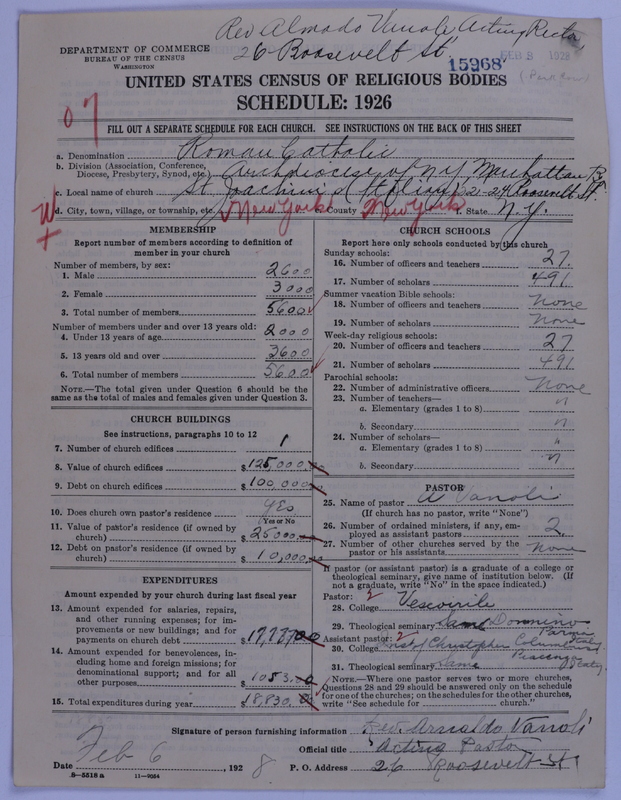 Rev Almado Vanoli Acting Rector
26 Roosevelt St
15968
FEB 8 1928
(Park Row)
DEPARTMENT OF COMMERCE
BUREAU OF THE CENSUS
WASHINGTON
UNITED STATES CENSUS OF RELIGIOUS BODIES
SCHEDULE: 1926
07
FILL OUT A SEPARATE SCHEDULE FOR EACH CHURCH. SEE INSTRUCTIONS ON THE BACK OF THIS SHEET
a. Denomination Roman Catholic
b. Division (Association, Conference, Diocese, Presbytery, Synod, etc.) Archdiocese of N Y Manhattan
c. Local name of church St. Joachim 22-24 Roosevelt St.
d. City, town, village, or township, etc. New York County New York State N.Y.
MEMBERSHIP
Report number of members according to definition of
member in your church
Number of members, by sex:
1. Male 2600
2. Female 3000
3. Total number of members 5600
Number of members under and over 13 years old:
4. Under 13 years of age 2000
5. 13 years old and over 3600
6. Total number of members 5600
NOTE.—The total given under Question 6 should be the
same as the total of males and females given under Question 3.
CHURCH BUILDINGS
See instructions, paragraphs 10 to 12
7. Number of church edifices 1
8. Value of church edifices $125,000
9. Debt on church edifices $100,000
10. Does church own pastor's residence? yes
(Yes or No)
11. Value of pastor's residence (if owned by
church) $25000
12. Debt on pastor's residence (if owned by
church) $10,000
EXPENDITURES
Amount expended by your church during last fiscal year
13. Amount expended for salaries, repairs,
and other running expenses; for im-
provements or new buildings; and for
payments on church debt $17,777.00
14. Amount expended for benevolences, in-
cluding home and foreign missions; for
denominational support; and for all
other purposes $1053.00
15. Total expenditures during year $18,830.00
CHURCH SCHOOLS
Report here only schools conducted by this church
Sunday schools:
16. Number of officers and teachers 27
17. Number of scholars 491
Summer vacation Bible schools:
18. Number of officers and teachers none
19. Number of scholars none
Week-day religious schools:
20. Number of officers and teachers 27
21. Number of scholars 491
Parochial schools:
22. Number of administrative officers None
23. Number of teachers—
a. Elementary (grades 1 to 8) "
b. Secondary "
24. Number of scholars—
a. Elementary (grades 1 to 8) "
b. Secondary "
PASTOR
25. Name of pastor A Vanoli
(If church has no pastor, write "None")
26. Number of ordained ministers, if any, em-
ployed as assistant pastors 2
27. Number of other churches served by the
pastor or his assistants none
If pastor (or assistant pastor) is a graduate of a college or
theological seminary, give name of institution below. (If
not a graduate, write "No" in the space indicated.)
Pastor: 2
28. College Vescovile
29. Theological seminary Donnino Parma Italy
Assistant pastor: 2
30. College Inst of Christopher Columbus
31. Theological seminary Same Piacenza Italy
NOTE.—Where one pastor serves two or more churches,
Questions 28 and 29 should be answered only on the schedule
for one of the churches; on the schedules for the other churches,
write "See schedule for church."
Signature of person furnishing information Rev. Arnaldo Vanoli
Official title Acting Pastor
Date Feb 6, 1928 P. O. Address 26 Roosevelt St
8—5518 a 11—9084